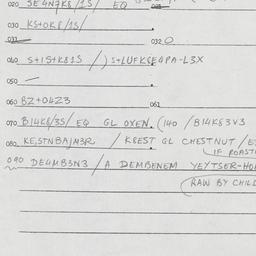 020 SE4N7K8/1S/ EQ
030 KS+OK8/1S/
031 032 O
040 S+1S+K81S /) S+LUFKSE4PA-L3X
050 —
060 BZ+04Z3 061
070 B14K8/3S/ EQ GL OXEN. (140 /B14K83V3
080 KE,STNBAJM3R / K8EST GL CHESTNUT /
IF ROAST
090 DE4MB3N3 /A DEMBENEM YEYTSER-HO
(RAW BY CHIL